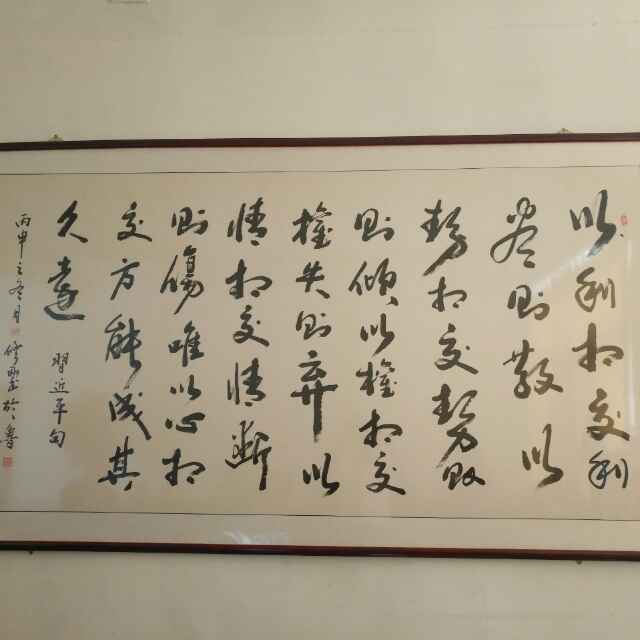 以利相交利
尽则散以
势相交势败
则倾以權相交
權失则弃以
情相交情断
则傷唯以心相
交方能成其
久遠
習近平句
丙申之冬月
於魯